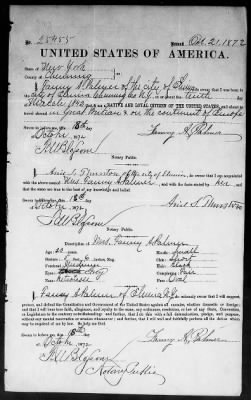 No. 28455 Issued Oct. 21. 1872
UNITED STATES OF AMERICA.
State of New York
County of Chemung
I, Fanny A Palmer of the city of Elmira
do swear that I was born in the
city of Elmira Chemung Co N.Y. on or about the tenth
day of 1840
that I am a NATIVE AND LOYAL CITIZEN OF THE UNITED STATES, and about to travel
in Great Britain & on the continent of Europe
Sworn to before me, this 18th day
of October 1872.
Fanny A. Palmer
Notary Public.
I, Ariel S. Thurston of the city of Elmira, do swear that I am acquainted
with the above named Mrs. Fanny A Palmer, and with the facts stated by her
Sworn to before me, this 18th day
of October 1872
Ariel S. Thurston
Notary Public.
Description of Mrs. Fanny A Palmer
Age: 32 years
Mouth: Small
Stature: 5 feet
Chin: Short
Hair: Black
Complexion: Fair
Face: Oval
I, Fanny A Palmer of Elmira N.Y. do solemnly swear that I will support,
protect, and defend the Constitution and Government of the United States against all enemies, whether domestic or foreign;
and that I will bear true faith, allegiance, and loyalty to the same, any ordinance, resolution, or law of any State, Convention,
or Legislature to the contrary notwithstanding; and further, that I do this with a full determination, pledge, and purpose,
without any mental reservation or evasion whatsoever; and, further, that I will well and faithfully perform all the duties which may be
required of me by law. So help me God.
Fanny A. Palmer
Sworn to before me, this 18th day
of October 1872
Notary Public